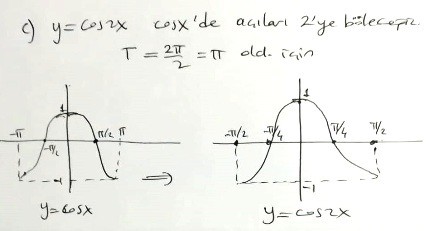 c) y = cos2x cosx'de açıları 2'ye böleceğiz.
T = 2π/2 = π old. için
1
-π -π/2 π/2 π
-1
y = cosx
⇒
1
-π/2 -π/4 π/4 π/2
-1
y = cos2x